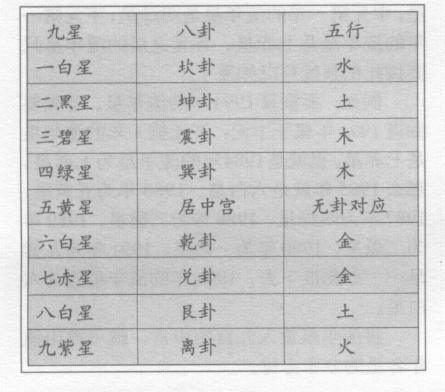 九星 八卦 五行
一白星 坎卦 水
二黑星 坤卦 土
三碧星 震卦 木
四绿星 巽卦 木
五黄星 居中宫 无卦对应
六白星 乾卦 金
七赤星 兑卦 金
八白星 艮卦 土
九紫星 离卦 火